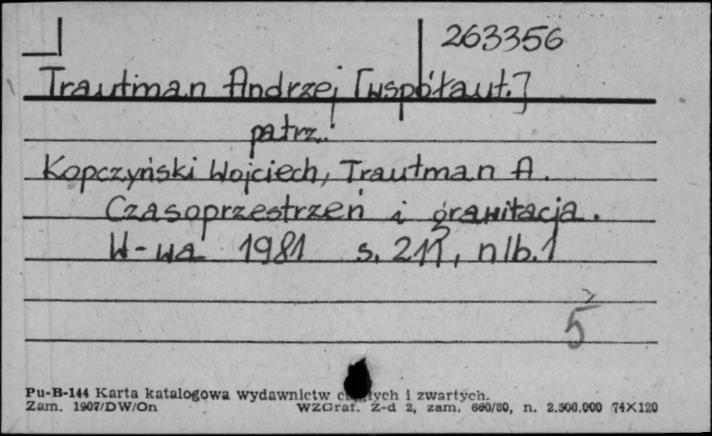 263356
Trautman Andrzej [współaut.]
patrz:
Kopczyński Wojciech, Trautman A.
Czasoprzestrzeń i grawitacja.
W-wa 1981 s. 211, nlb. 1
5
Pu-B-144 Karta katalogowa wydawnictw ciągłych i zwartych.
Zam. 1907/DW/On WZGraf. Z-d 2, zam. 660/80, n. 2.500.000 74×120